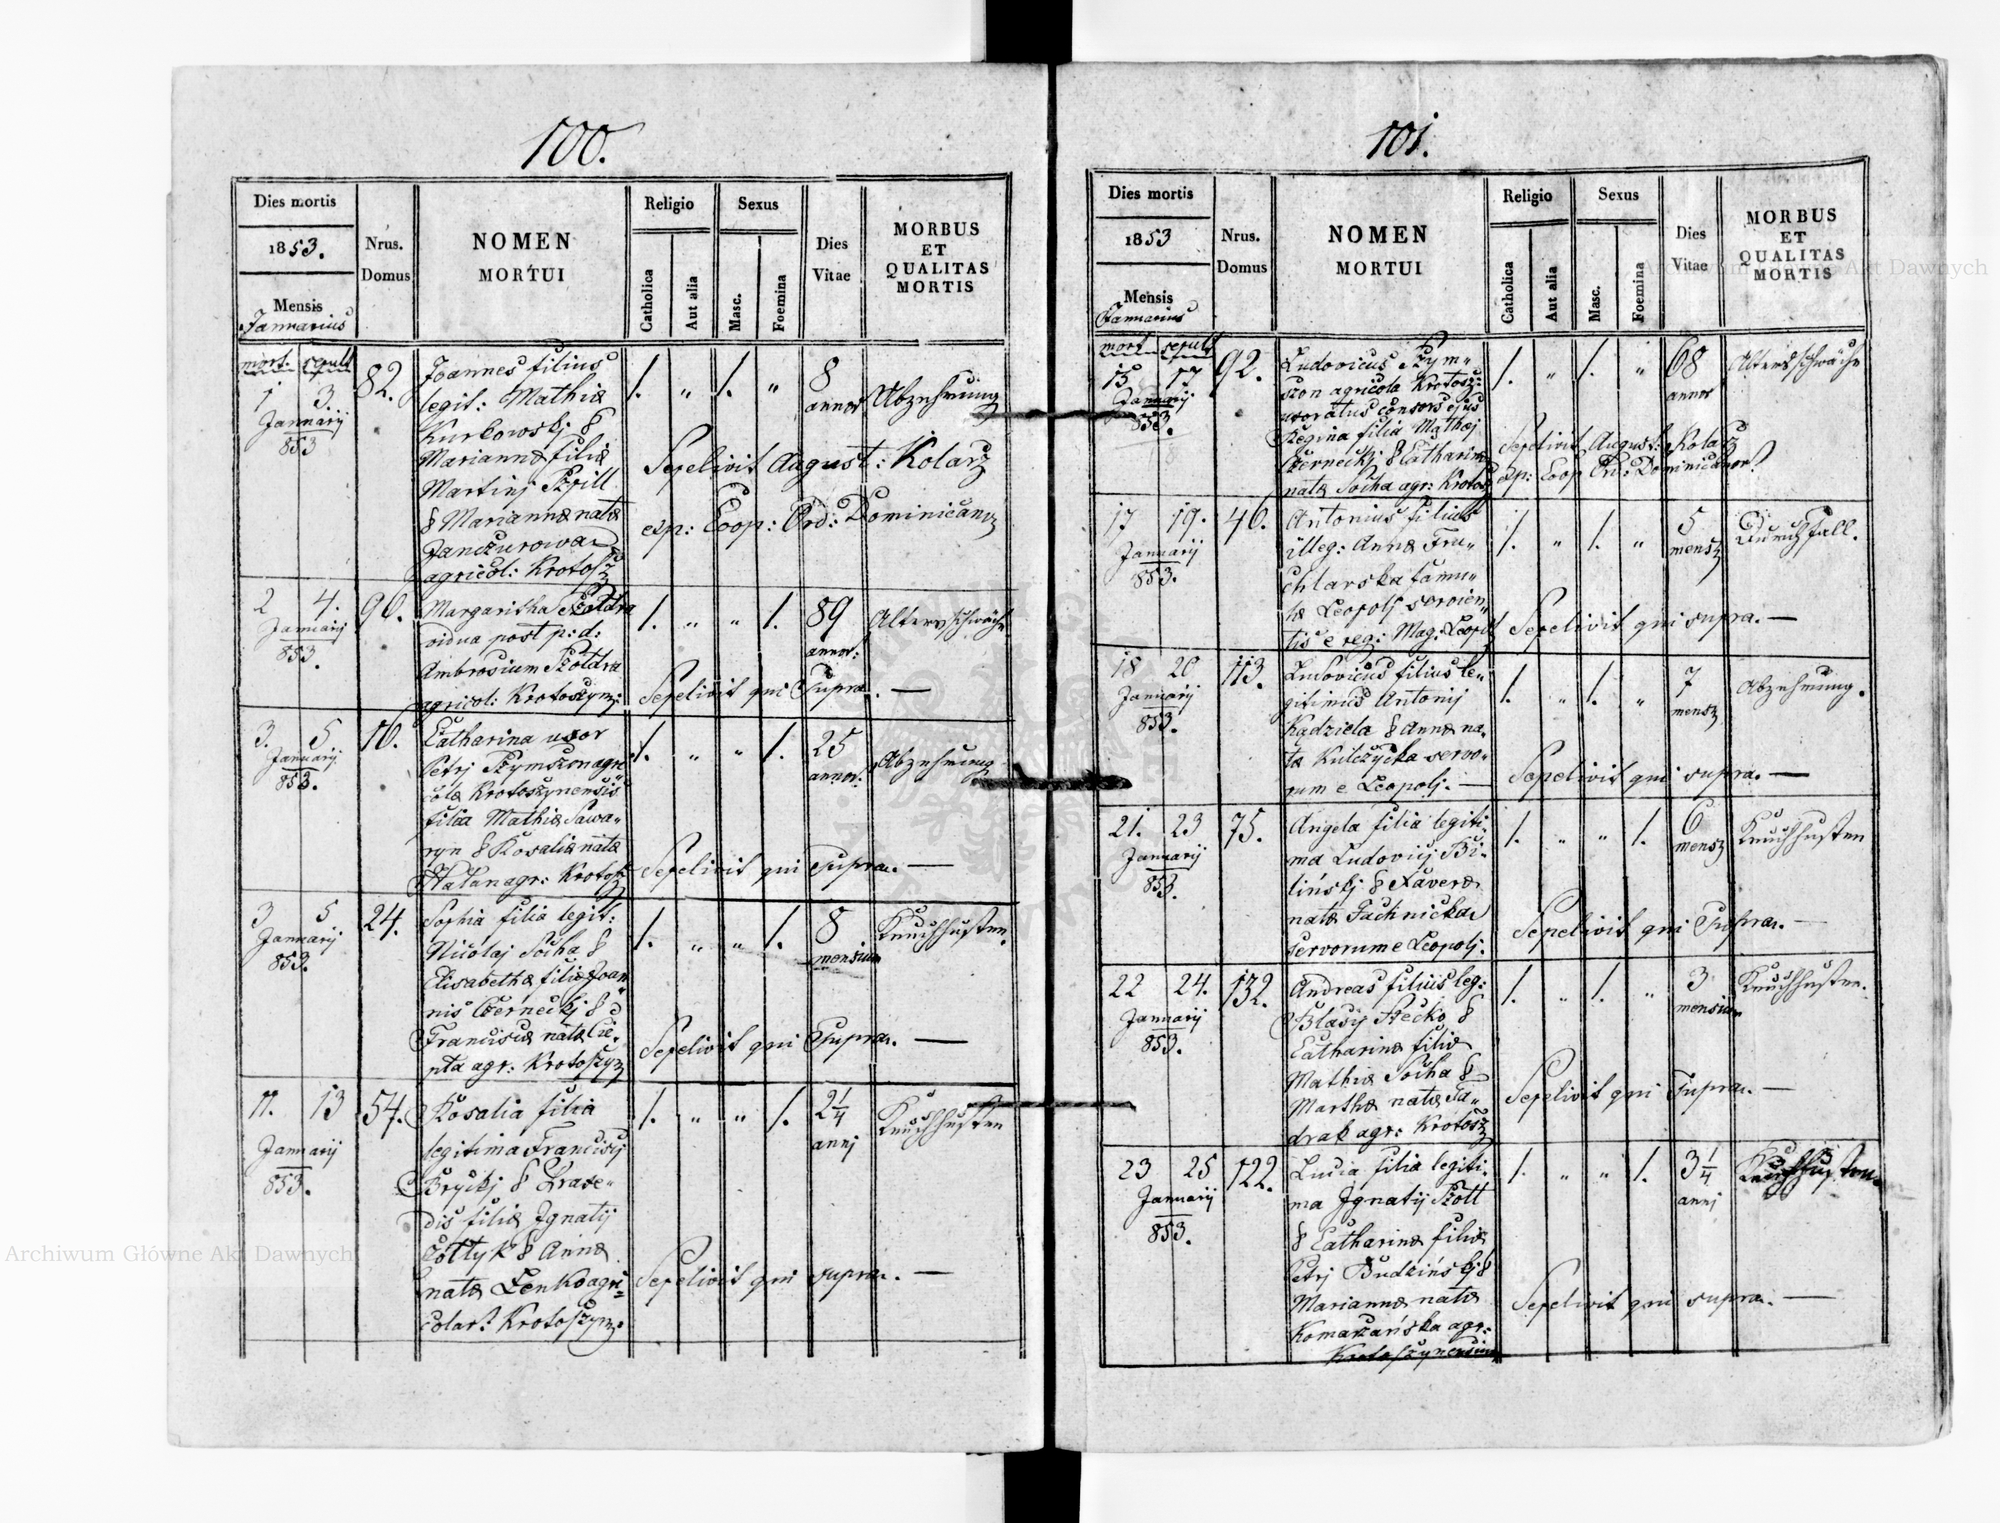 100.
Dies mortis
1853.
Mensis
Januarius
Nrus.
Domus
NOMEN
MORTUI
Religio
Catholica
Aut alia
Sexus
Masc.
Foemina
Dies
Vitae
MORBUS
ET
QUALITAS
MORTIS
mort. sepult
1 3.
Januarij
853
82.
Joannes filius
legit: Mathiæ
Kurkowskj &
Mariannæ filiæ
Martinj Szpill
& Mariannæ natæ
Janczurowa
agricol: Krotosz
1. " 1. "
8
annor
Abzehrung
Sepelivit August: Kolarz
exp: Coop: Ord: Dominicanor
2 4.
Januarij
853.
90.
Margaritha Szoldra
vidua post p: d:
Ambrosium Szoldra
agricol: Krotoszyn:
1. " " 1.
89
annor:
Altersschwäche
Sepelivit qui Supra. —
3. 5
Januarij
853.
10.
Catharina uxor
Petrj Szymszon agri
colæ Krotoszynensis
filia Mathiæ Sawa„
ryn & Rosaliæ natæ
agr: Krotosz
1. " " 1.
25
annor.
Abzehrung
Sepelivit qui Supra. —
3 5
Januarij
853.
24.
Sophia filia legit:
Nicolaj Socha &
Elisabethæ filiæ Joan„
nis Czerneckj &
Franciscæ natæ Cie„
nta agr: Krotoszyn
1. " " 1.
8
mensium
Keuchhusten.
Sepelivit qui Supra. —
11. 13
Januarij
853.
54.
Rosalia filia
legitima Franciscj
Bryckj & Praxe„
dis filiæ Ignatij
Soltyk & Annæ
natæ Lenko agri=
colar: Krotoszyn:
1. " " 1.
2 1/4
annj
Keuchhusten
Sepelivit qui supra. —
101.
Dies mortis
1853
Mensis
Januarius
Nrus.
Domus
NOMEN
MORTUI
Religio
Catholica
Aut alia
Sexus
Masc.
Foemina
Dies
Vitae
MORBUS
ET
QUALITAS
MORTIS
mort sepult
15 17
Januarij
853.
92.
Ludovicus Szym„
szon agricola Krotosz:
uxoratus consors ejus
Regina filia Mathej
Czerneckj & Catharinæ
natæ Socha agr: Krotosz
1. " 1. "
68
annor
Altersschwäche
Sepelivit August: Kolarz
exp: Coop Ord: Dominicanor
17 19.
Januarij
853.
46.
Antonius filius
illeg: Annæ Fru„
chlarska famu„
læ Leopolj servien„
tis e reg: Mag: Leopol
1. " 1. "
5
mensz
Durchfall.
Sepelivit qui supra. —
18 20
Januarij
853.
113.
Ludovicus filius le„
gitimus Antonij
Kądziela & Annæ na„
tæ Kulczycka servo„
rum e Leopolj. —
1. " 1. "
7
mensz
Abzehrung.
Sepelivit qui supra. —
21. 23
Januarij
853.
75.
Angela filia legiti„
ma Ludovicj Bi„
lińskj & Xaveræ
natæ Jachnicka
servorum e Leopolj.
1. " " 1.
6
mensz
Keuchhusten
Sepelivit qui Supra. —
22 24.
Januarij
853.
132.
Andreas filius leg:
Blasij Stecko &
Catharinæ filiæ
Mathiæ Socha &
Marthæ natæ Fa„
drak agr: Krotosz
1. " 1. "
3
mensium
Keuchhusten.
Sepelivit qui Supra. —
23 25
Januarij
853.
122.
Lucia filia legiti„
ma Ignatij Szott
& Catharinæ filiæ
Petrj Budzińskj &
Mariannæ natæ
Komarzańska agr:
Krotoszynensium
1. " " 1.
3 1/4
annj
Keuchhusten
Sepelivit qui supra. —
Archiwum Główne Akt Dawnych
Archiwum Główne Akt Dawnych